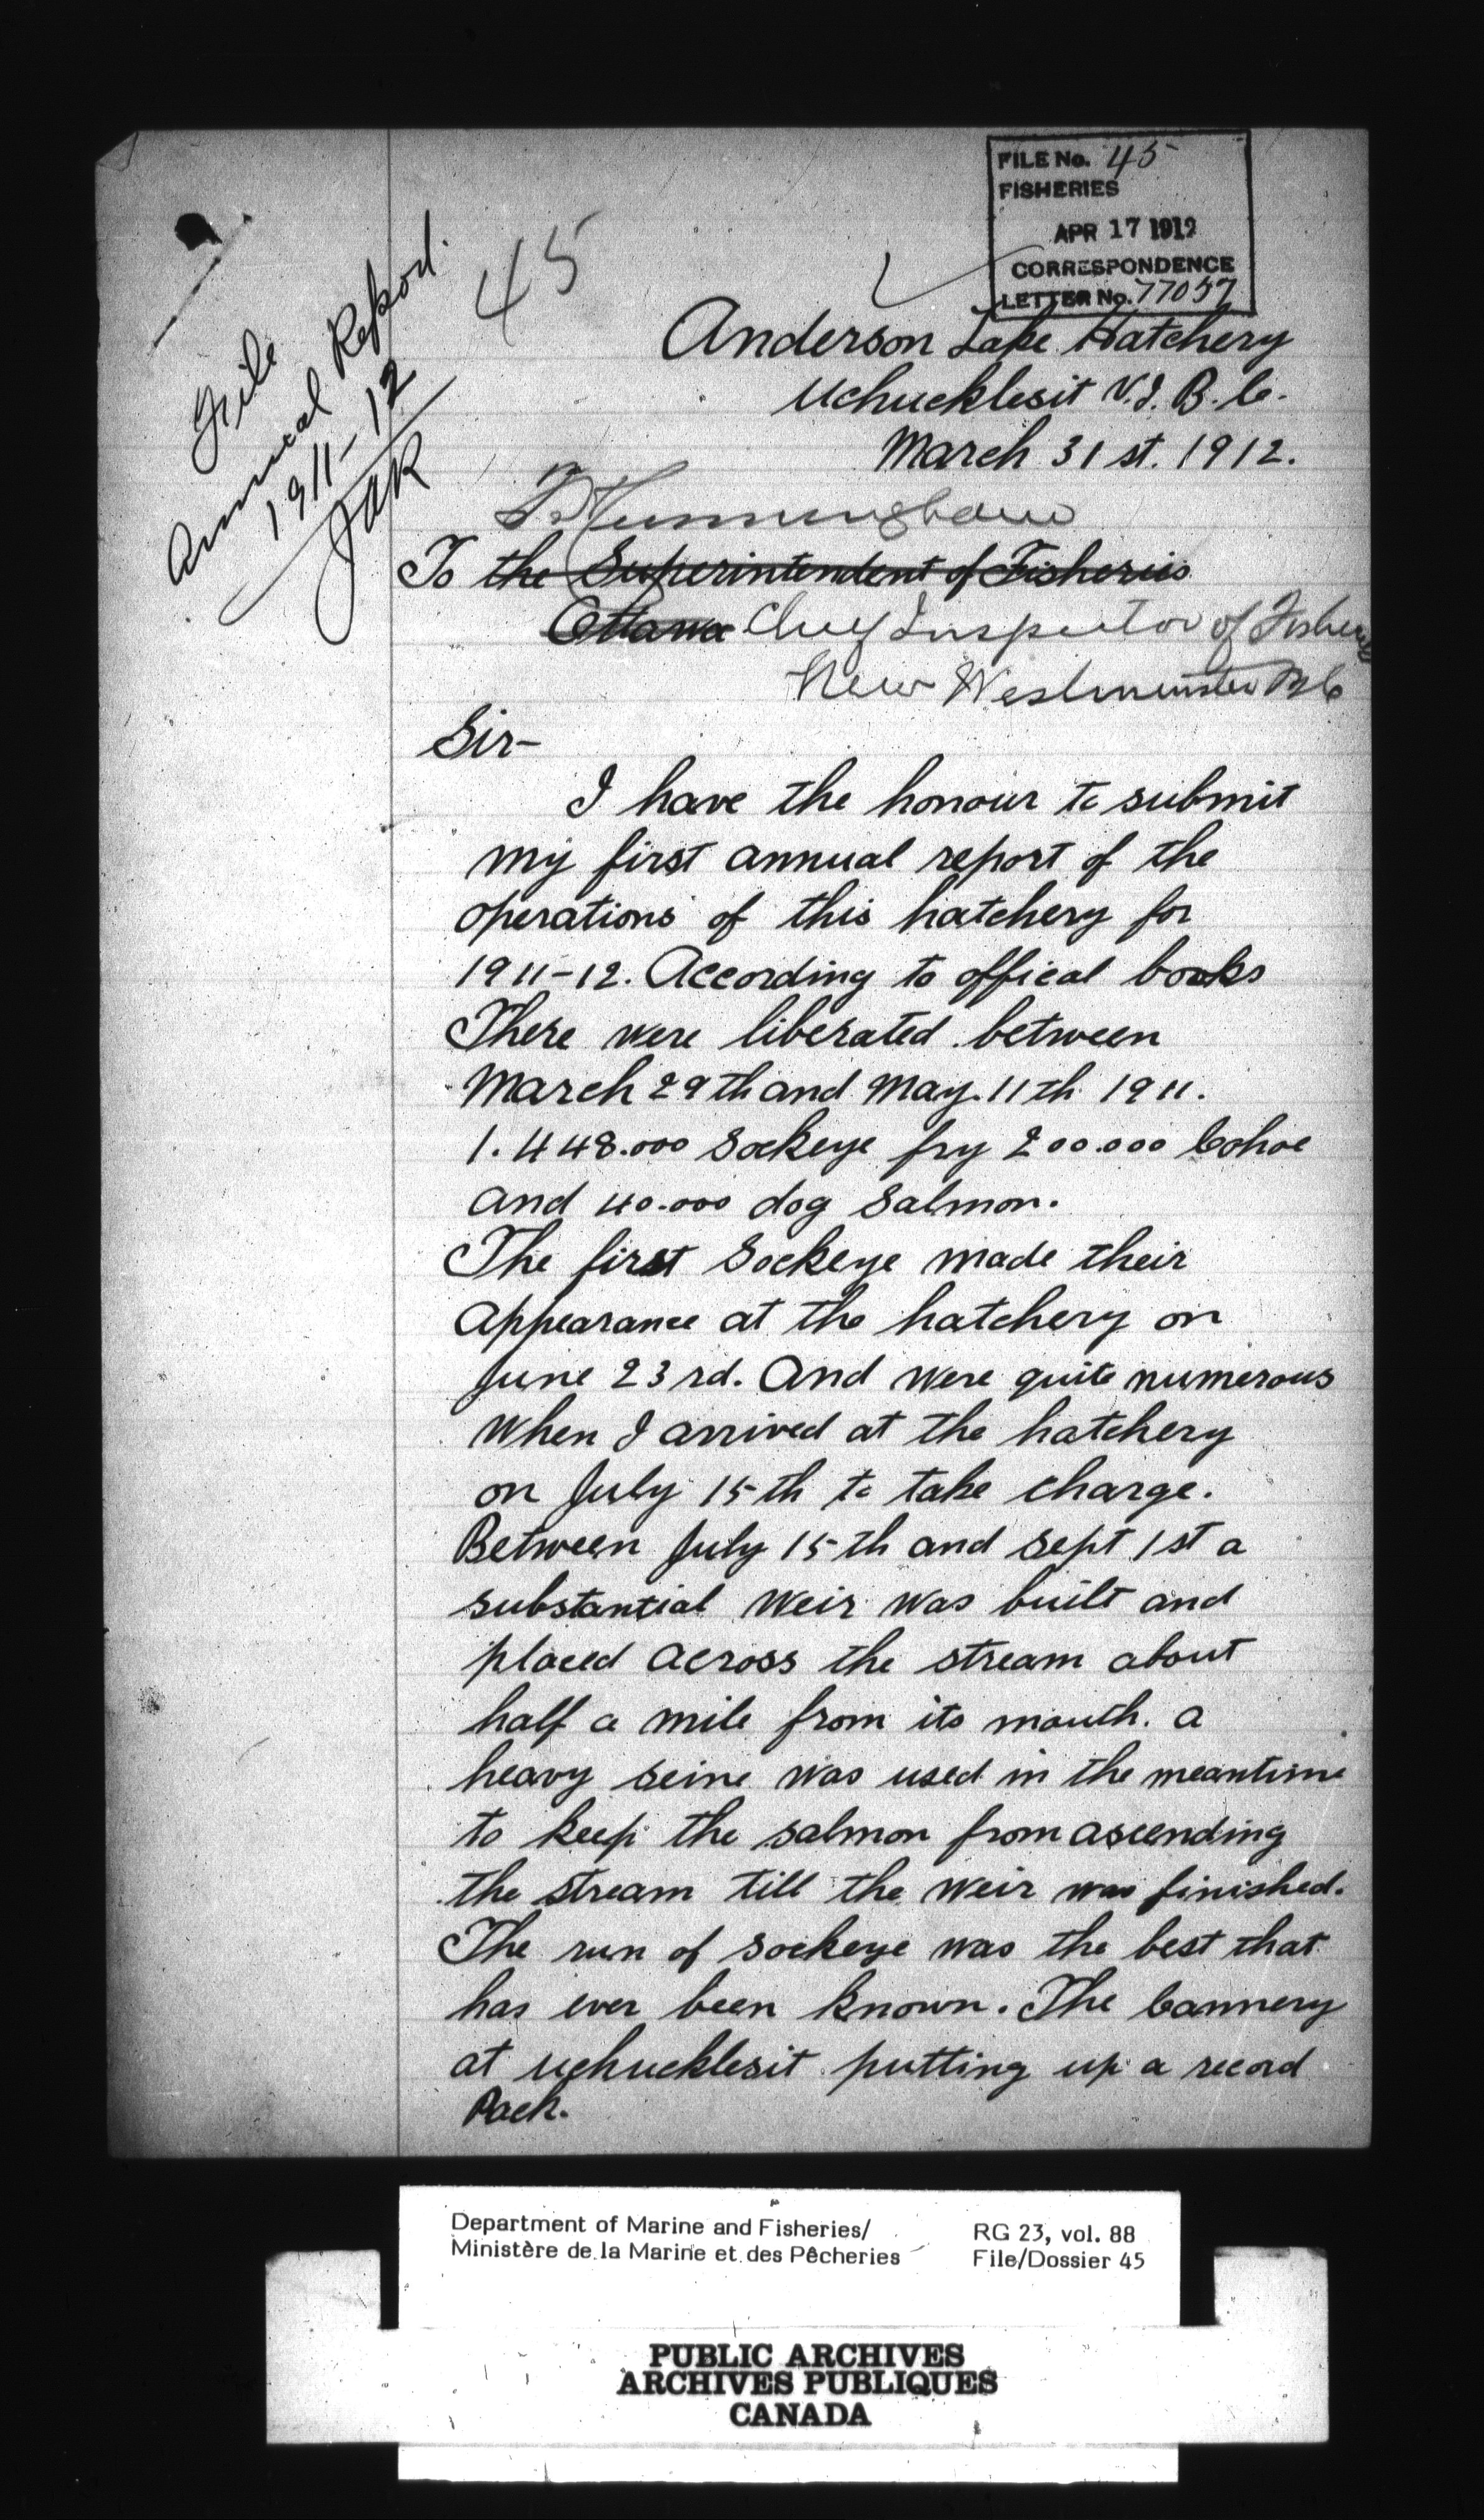 FILE No. 45
FISHERIES
APR 17 1912
CORRESPONDENCE
LETTER No. 77057
45
File
Annual Report.
1911-12
JAR
Anderson Lake Hatchery
Uchucklesit V.I. B.C.
March 31st. 1912.
F H Cunningham
To the Superintendent of Fisheries
Ottawa Chief Inspector of Fisheries
New Westminster BC
Sir-
I have the honour to submit
my first annual report of the
operations of this hatchery for
1911-12. According to offical books
There were liberated between
March 29th and May. 11th 1911.
1.448.000 Sockeye fry 200.000 Cohoe
and 40.000 dog Salmon.
The first Sockeye made their
appearance at the hatchery on
June 23rd. And were quite numerous
when I arrived at the hatchery
on July 15th to take charge.
Between July 15th and Sept 1st a
substantial weir was built and
placed across the stream about
half a mile from its mouth. a
heavy seine was used in the meantime
to keep the salmon from ascending
the stream till the weir was finished.
The run of sockeye was the best that
has ever been known. The Cannery
at uchucklesit putting up a record
Pack.
Department of Marine and Fisheries/
Ministère de la Marine et des Pêcheries
RG 23, vol. 88
File/Dossier 45
PUBLIC ARCHIVES
ARCHIVES PUBLIQUES
CANADA